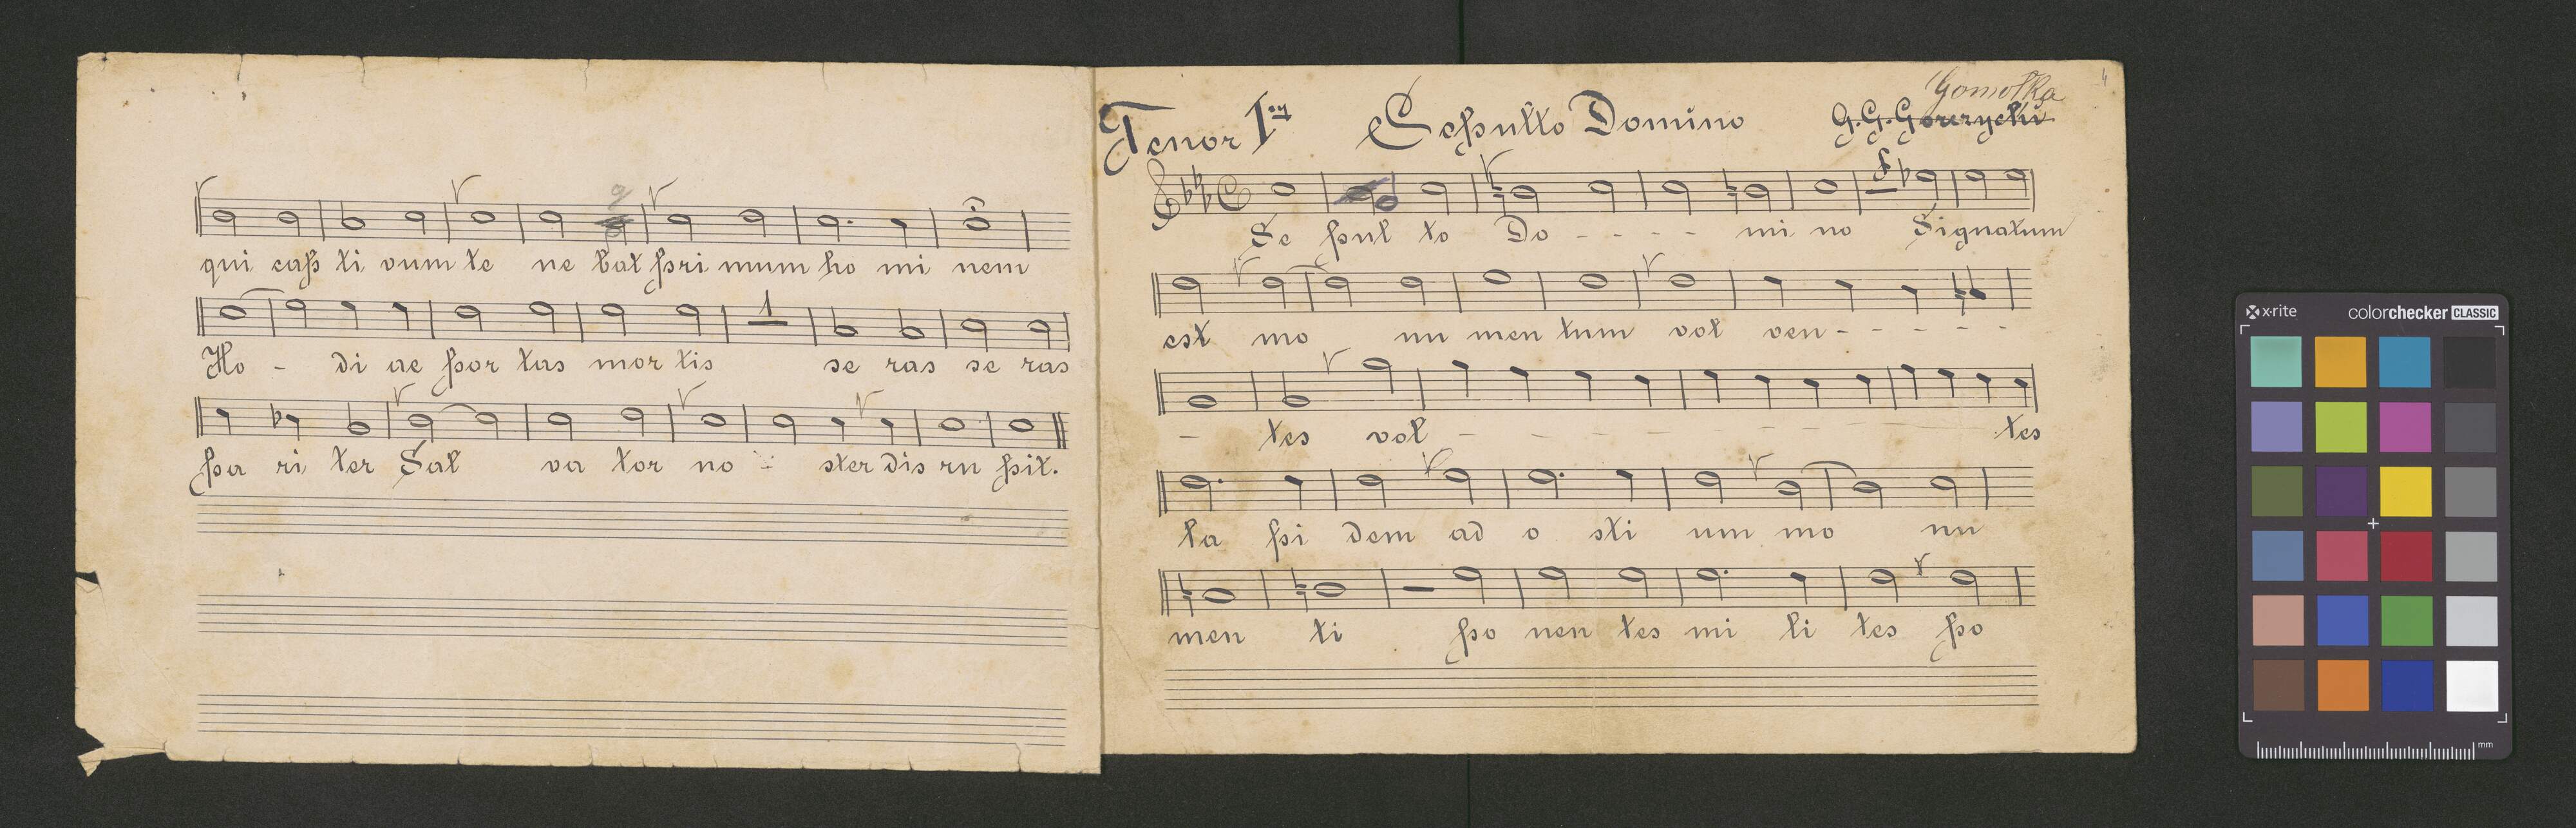 qui cap ti vum te ne bat pri mum ho mi nem
Ho - di ae por tas mor tis 1 se ras se ras
pa ri ter Sal va tor no - ster dis ru pit.
4
Gomołka
Tenor Iszy Sepulto Domino G. G. Gorczycki
Se pul to Do - - - - mi no Signatum
est mo nu men tum vol ven - - - - -
- tes vol - - - - - - - - - tes
la pi dem ad o sti um mo nu
men ti po nen tes mi li tes po
x-rite colorchecker CLASSIC
mm